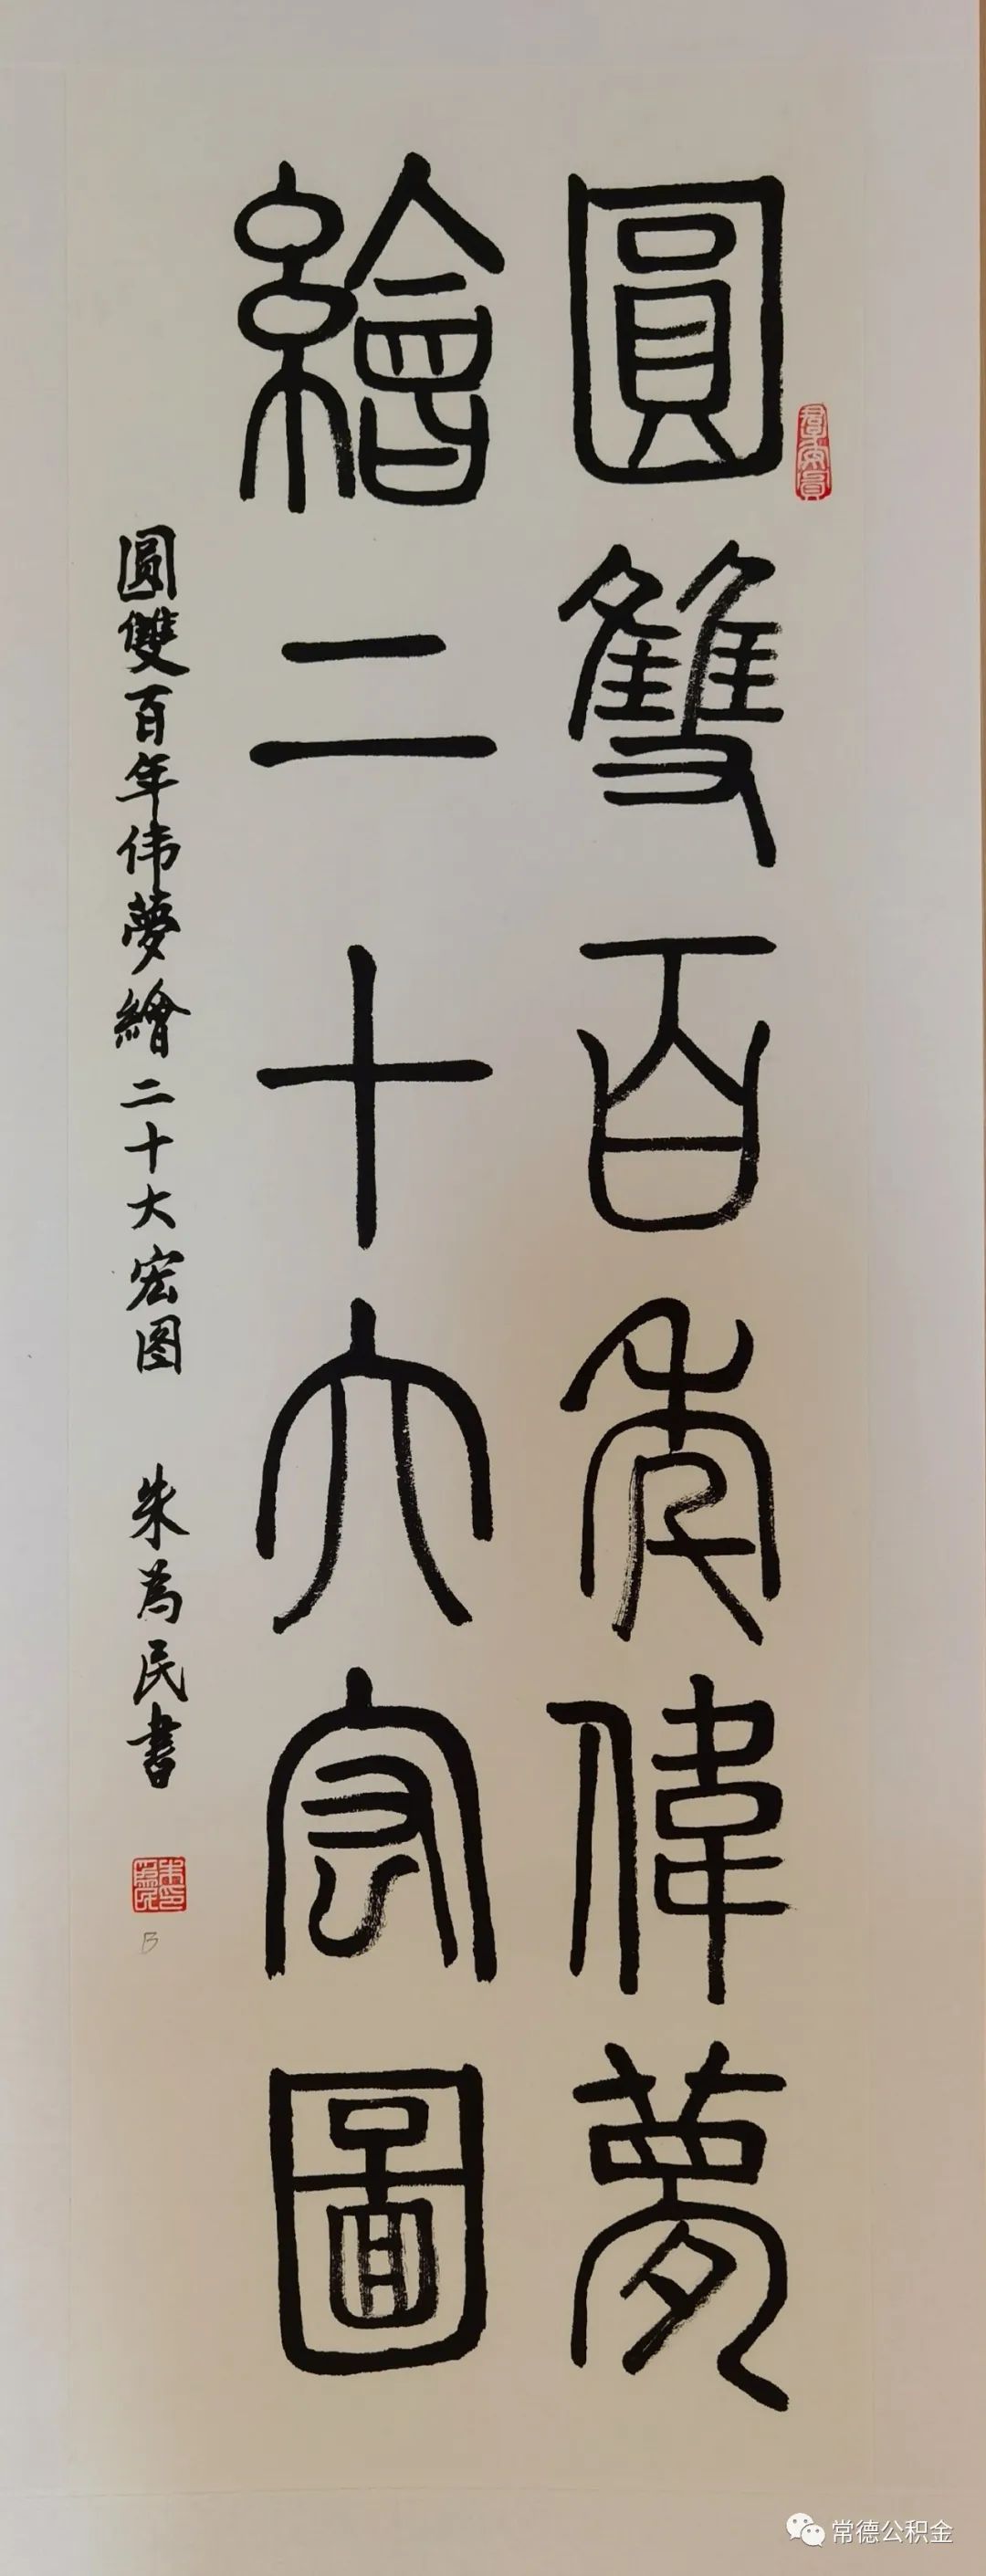 圓雙百年偉夢
繪二十大宏圖
圓雙百年伟夢繪二十大宏图 朱為民書
常德公积金